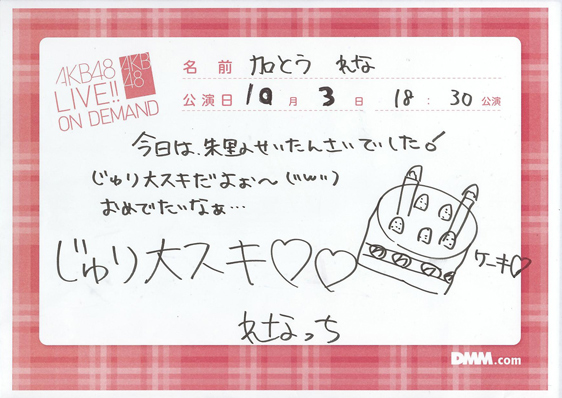 AKB48
LIVE!!
ON DEMAND
AKB
48
名前 加とう れな
公演日 10月 3日 18:30公演
今日は、朱里のせいたんさいでした
じゅり大スキだよぉ〜(''w'')
おめでたいなぁ…
じゅり大スキ♡♡
ケーキ♡
れなっち
DMM.com